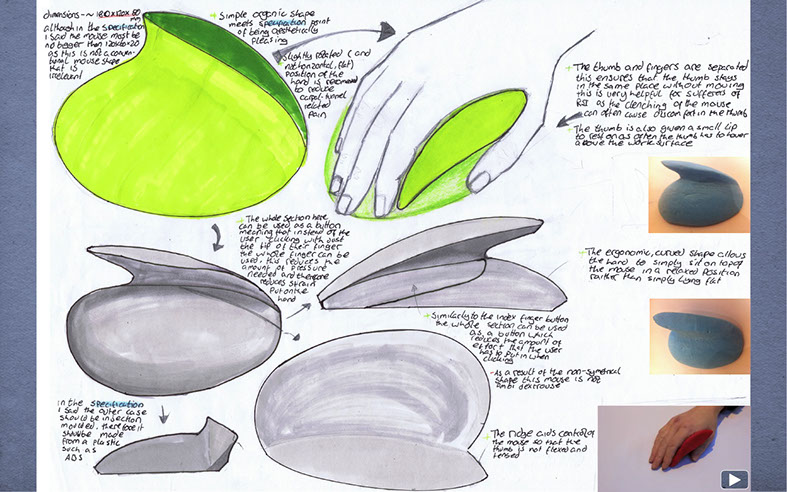 dimensions - ~ 180x120x60
mm
although in the specification
I said the mouse must be
no bigger than 120x60x20
as this is not a conven-
tional mouse shape
that is
irrelevant
+ Simple organic shape
meets specification point
of being aesthetically
pleasing
+ Slightly rotated (and
not horizontal, flat)
position of the
hand is recommend
to reduce
carpel-tunnel
related
pain
+ The thumb and fingers are separated
this ensures that the thumb stays
in the same place without moving
this is very helpful for sufferers of
RSI as the clenching of the mouse
can often cause discomfort in the thumb
+ The thumb is also given a small lip
to rest on as often the thumb has to hover
above the work surface
+ The whole section here
can be used as a button
meaning that instead of the
user clicking with just
the tip of their finger
the whole finger can be
used, this reduces the
amount of pressure
needed and therefore
reduces strain
put on the
hand
+ The ergonomic, curved shape allows
the hand to simply sit on top of
the mouse in a relaxed position
rather than simply lying flat
+ Similarly to the index finger button
the whole section can be used
as a button which
reduces the amount of
effort that the user
has to put in when
clicking
- As a result of the non-symetrical
shape this mouse is not
ambidextrouse
in the specification
I said the outer case
should be injection
moulded, therefore it
should be made
from a plastic
such as
ABS
+ The ridge aids control of
the mouse so that the
thumb is not flexed and
tensed